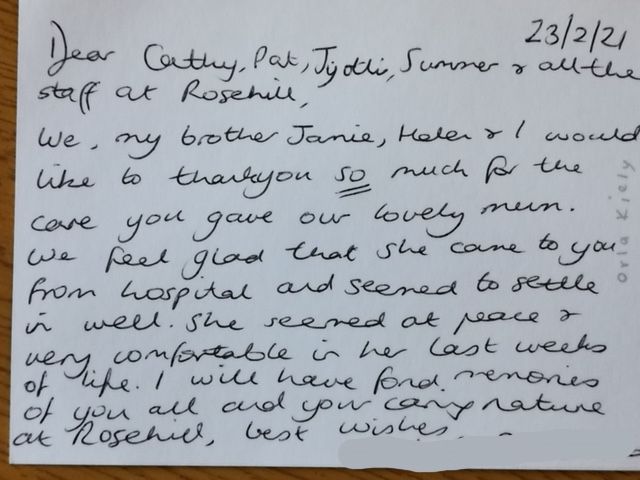 23/2/21
Dear Cathy, Pat, Jyothi, Summer & all the
staff at Rosehill,
We, my brother Jamie, Helen & I would
like to thankyou so much for the
care you gave our lovely mum.
We feel glad that she came to you
from hospital and seemed to settle
in well. She seemed at peace &
very comfortable in her last weeks
of life. I will have fond memories
of you all and your caring nature
at Rosehill, best wishes,
Orla Kiely